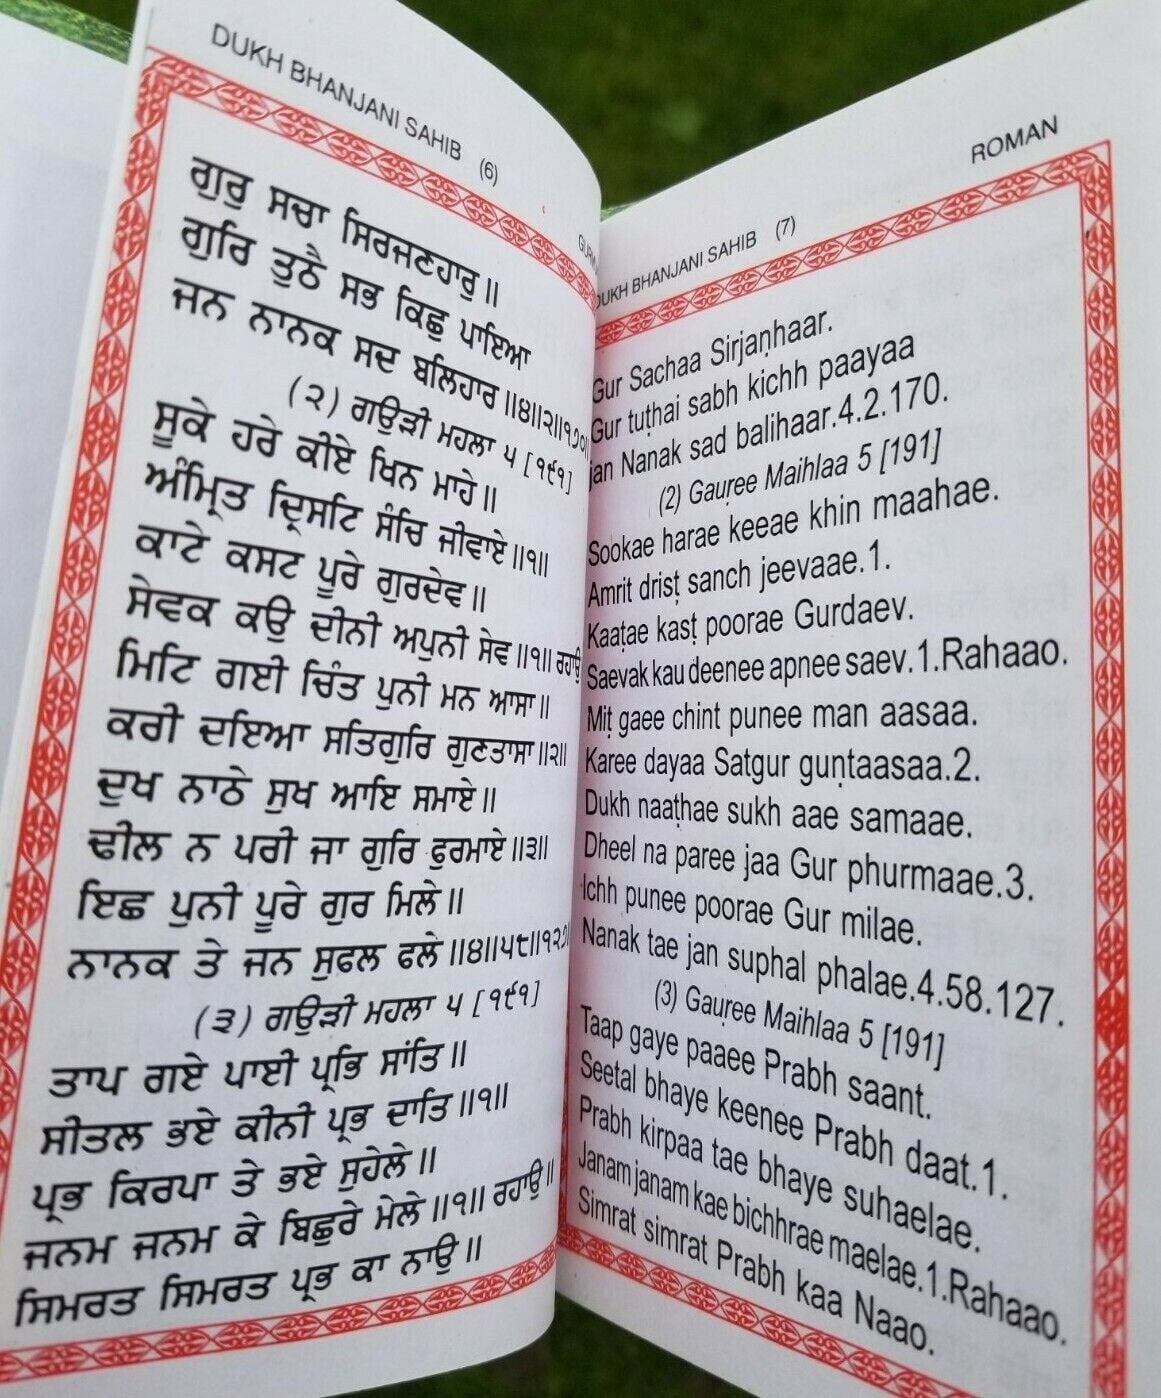 DUKH BHANJANI SAHIB (6)
ਗੁਰੁ ਸਚਾ ਸਿਰਜਣਹਾਰੁ॥
ਗੁਰਿ ਤੁਠੈ ਸਭ ਕਿਛੁ ਪਾਇਆ
ਜਨ ਨਾਨਕ ਸਦ ਬਲਿਹਾਰ॥੪॥੨॥੧੭੦॥
(੨) ਗਉੜੀ ਮਹਲਾ ੫ [੧੯੧]
ਸੂਕੇ ਹਰੇ ਕੀਏ ਖਿਨ ਮਾਹੇ॥
ਅੰਮ੍ਰਿਤ ਦ੍ਰਿਸਟਿ ਸੰਚਿ ਜੀਵਾਏ॥੧॥
ਕਾਟੇ ਕਸਟ ਪੂਰੇ ਗੁਰਦੇਵ॥
ਸੇਵਕ ਕਉ ਦੀਨੀ ਅਪੁਨੀ ਸੇਵ॥੧॥ ਰਹਾਉ
ਮਿਟਿ ਗਈ ਚਿੰਤ ਪੁਨੀ ਮਨ ਆਸਾ॥
ਕਰੀ ਦਇਆ ਸਤਿਗੁਰਿ ਗੁਣਤਾਸਾ॥੨॥
ਦੁਖ ਨਾਠੇ ਸੁਖ ਆਇ ਸਮਾਏ॥
ਢੀਲ ਨ ਪਰੀ ਜਾ ਗੁਰਿ ਫੁਰਮਾਏ॥੩॥
ਇਛ ਪੁਨੀ ਪੂਰੇ ਗੁਰ ਮਿਲੇ॥
ਨਾਨਕ ਤੇ ਜਨ ਸੁਫਲ ਫਲੇ॥੪॥੫੮॥੧੨੭॥
(੩) ਗਉੜੀ ਮਹਲਾ ੫ [੧੯੧]
ਤਾਪ ਗਏ ਪਾਈ ਪ੍ਰਭਿ ਸਾਂਤਿ॥
ਸੀਤਲ ਭਏ ਕੀਨੀ ਪ੍ਰਭ ਦਾਤਿ॥੧॥
ਪ੍ਰਭ ਕਿਰਪਾ ਤੇ ਭਏ ਸੁਹੇਲੇ॥
ਜਨਮ ਜਨਮ ਕੇ ਬਿਛੁਰੇ ਮੇਲੇ॥੧॥ ਰਹਾਉ॥
ਸਿਮਰਤ ਸਿਮਰਤ ਪ੍ਰਭ ਕਾ ਨਾਉ॥
ROMAN
DUKH BHANJANI SAHIB (7)
Gur Sachaa Sirjaṇhaar.
Gur tuṭhai sabh kichh paayaa
jan Nanak sad balihaar.4.2.170.
(2) Gauṛee Maihlaa 5 [191]
Sookae harae keeae khin maahae.
Amrit drisṭ sanch jeevaae.1.
Kaaṭae kasṭ poorae Gurdaev.
Saevak kau deenee apnee saev.1.Rahaao.
Miṭ gaee chint punee man aasaa.
Karee dayaa Satgur guṇtaasaa.2.
Dukh naaṭhae sukh aae samaae.
Dheel na paree jaa Gur phurmaae.3.
Ichh punee poorae Gur milae.
Nanak tae jan suphal phalae.4.58.127.
(3) Gauṛee Maihlaa 5 [191]
Taap gaye paaee Prabh saant.
Seetal bhaye keenee Prabh daat.1.
Prabh kirpaa tae bhaye suhaelae.
Janam janam kae bichhrae maelae.1.Rahaao.
Simrat simrat Prabh kaa Naao.